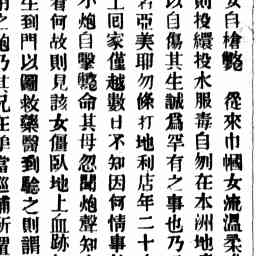 女自槍斃　從來巾幗女流溫柔
則投繯投水服毒自刎在本洲地
以自傷其生誠爲罕有之事也乃
名亞美耶勿條打地利店年二十
上回家僅越數日不知因何情事
小炮自擊斃命其母忽聞炮聲知
看何故則見該女僵臥地上血跡
生到門以圖救藥醫到驗之則謂
用之炮乃其兄在手當巡捕所置